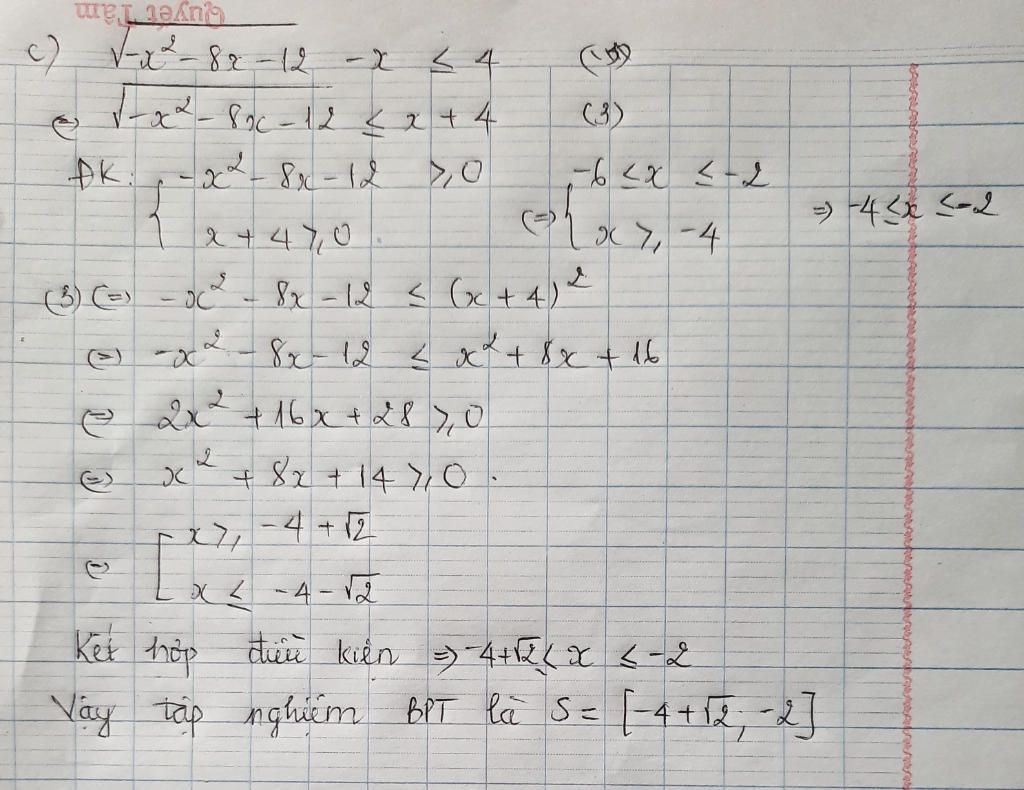 Quyết Tâm
c) √(-x² - 8x - 12) - x ≤ 4
⇔ √(-x² - 8x - 12) ≤ x + 4 (3)
ĐK: { -x² - 8x - 12 ≥ 0 ⇔ { -6 ≤ x ≤ -2 ⇒ -4 ≤ x ≤ -2
x + 4 ≥ 0 x ≥ -4
(3) ⇔ -x² - 8x - 12 ≤ (x + 4)²
⇔ -x² - 8x - 12 ≤ x² + 8x + 16
⇔ 2x² + 16x + 28 ≥ 0
⇔ x² + 8x + 14 ≥ 0.
⇔ [ x ≥ -4 + √2
x ≤ -4 - √2
Kết hợp điều kiện ⇒ -4+√2 ≤ x ≤ -2
Vậy tập nghiệm BPT là S = [-4 + √2; -2]